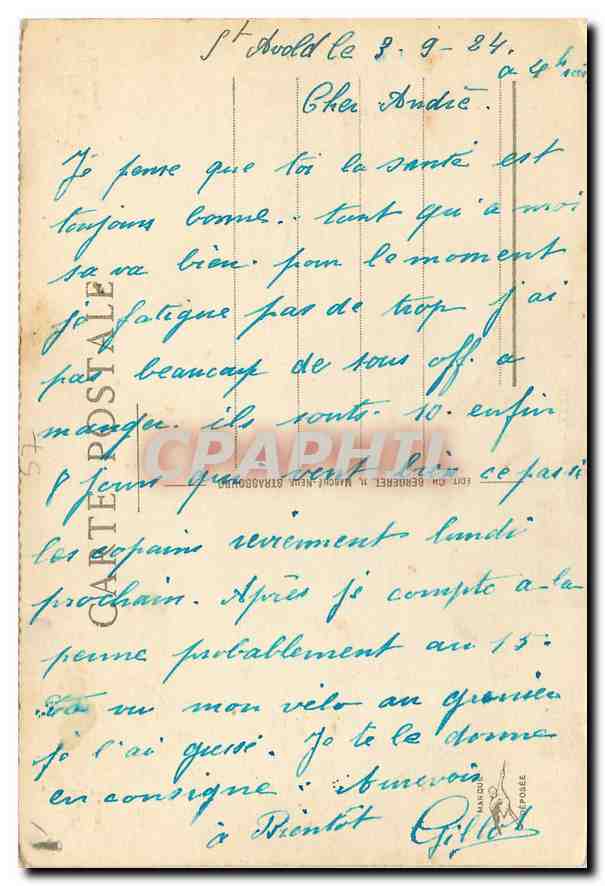 St Avold le 3-9-24.
a 4h
Cher André.
Je pense que toi la santé est
toujours bonne.. tant qu'a moi
sa va bien. pour le moment
je fatigue pas de trop j'ai
pas beaucoup de sous off. a
manger. ils sonts. 10. enfin
8 jours qui vent bien ce passé
les copains reviennent lundi
prochain. Après je compte a la
perme probablement au 15.
vu mon vélo au grenier
je l'ai Je te le donne
en consigne. Aurevoir
à Bientôt Gillot
CARTE POSTALE
EDIT. CH. BERGERET, 11, MARCHÉ-NEUF, STRASBOURG
MARQUE DÉPOSÉE
57
CPAPHIL